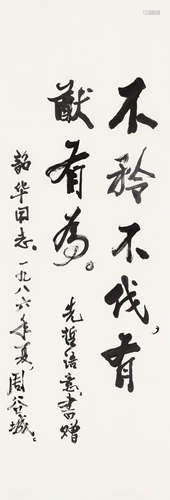 不矜不伐，有
猷有為。
先哲语意，書贈
韶华同志。一九八六年夏，周谷城。